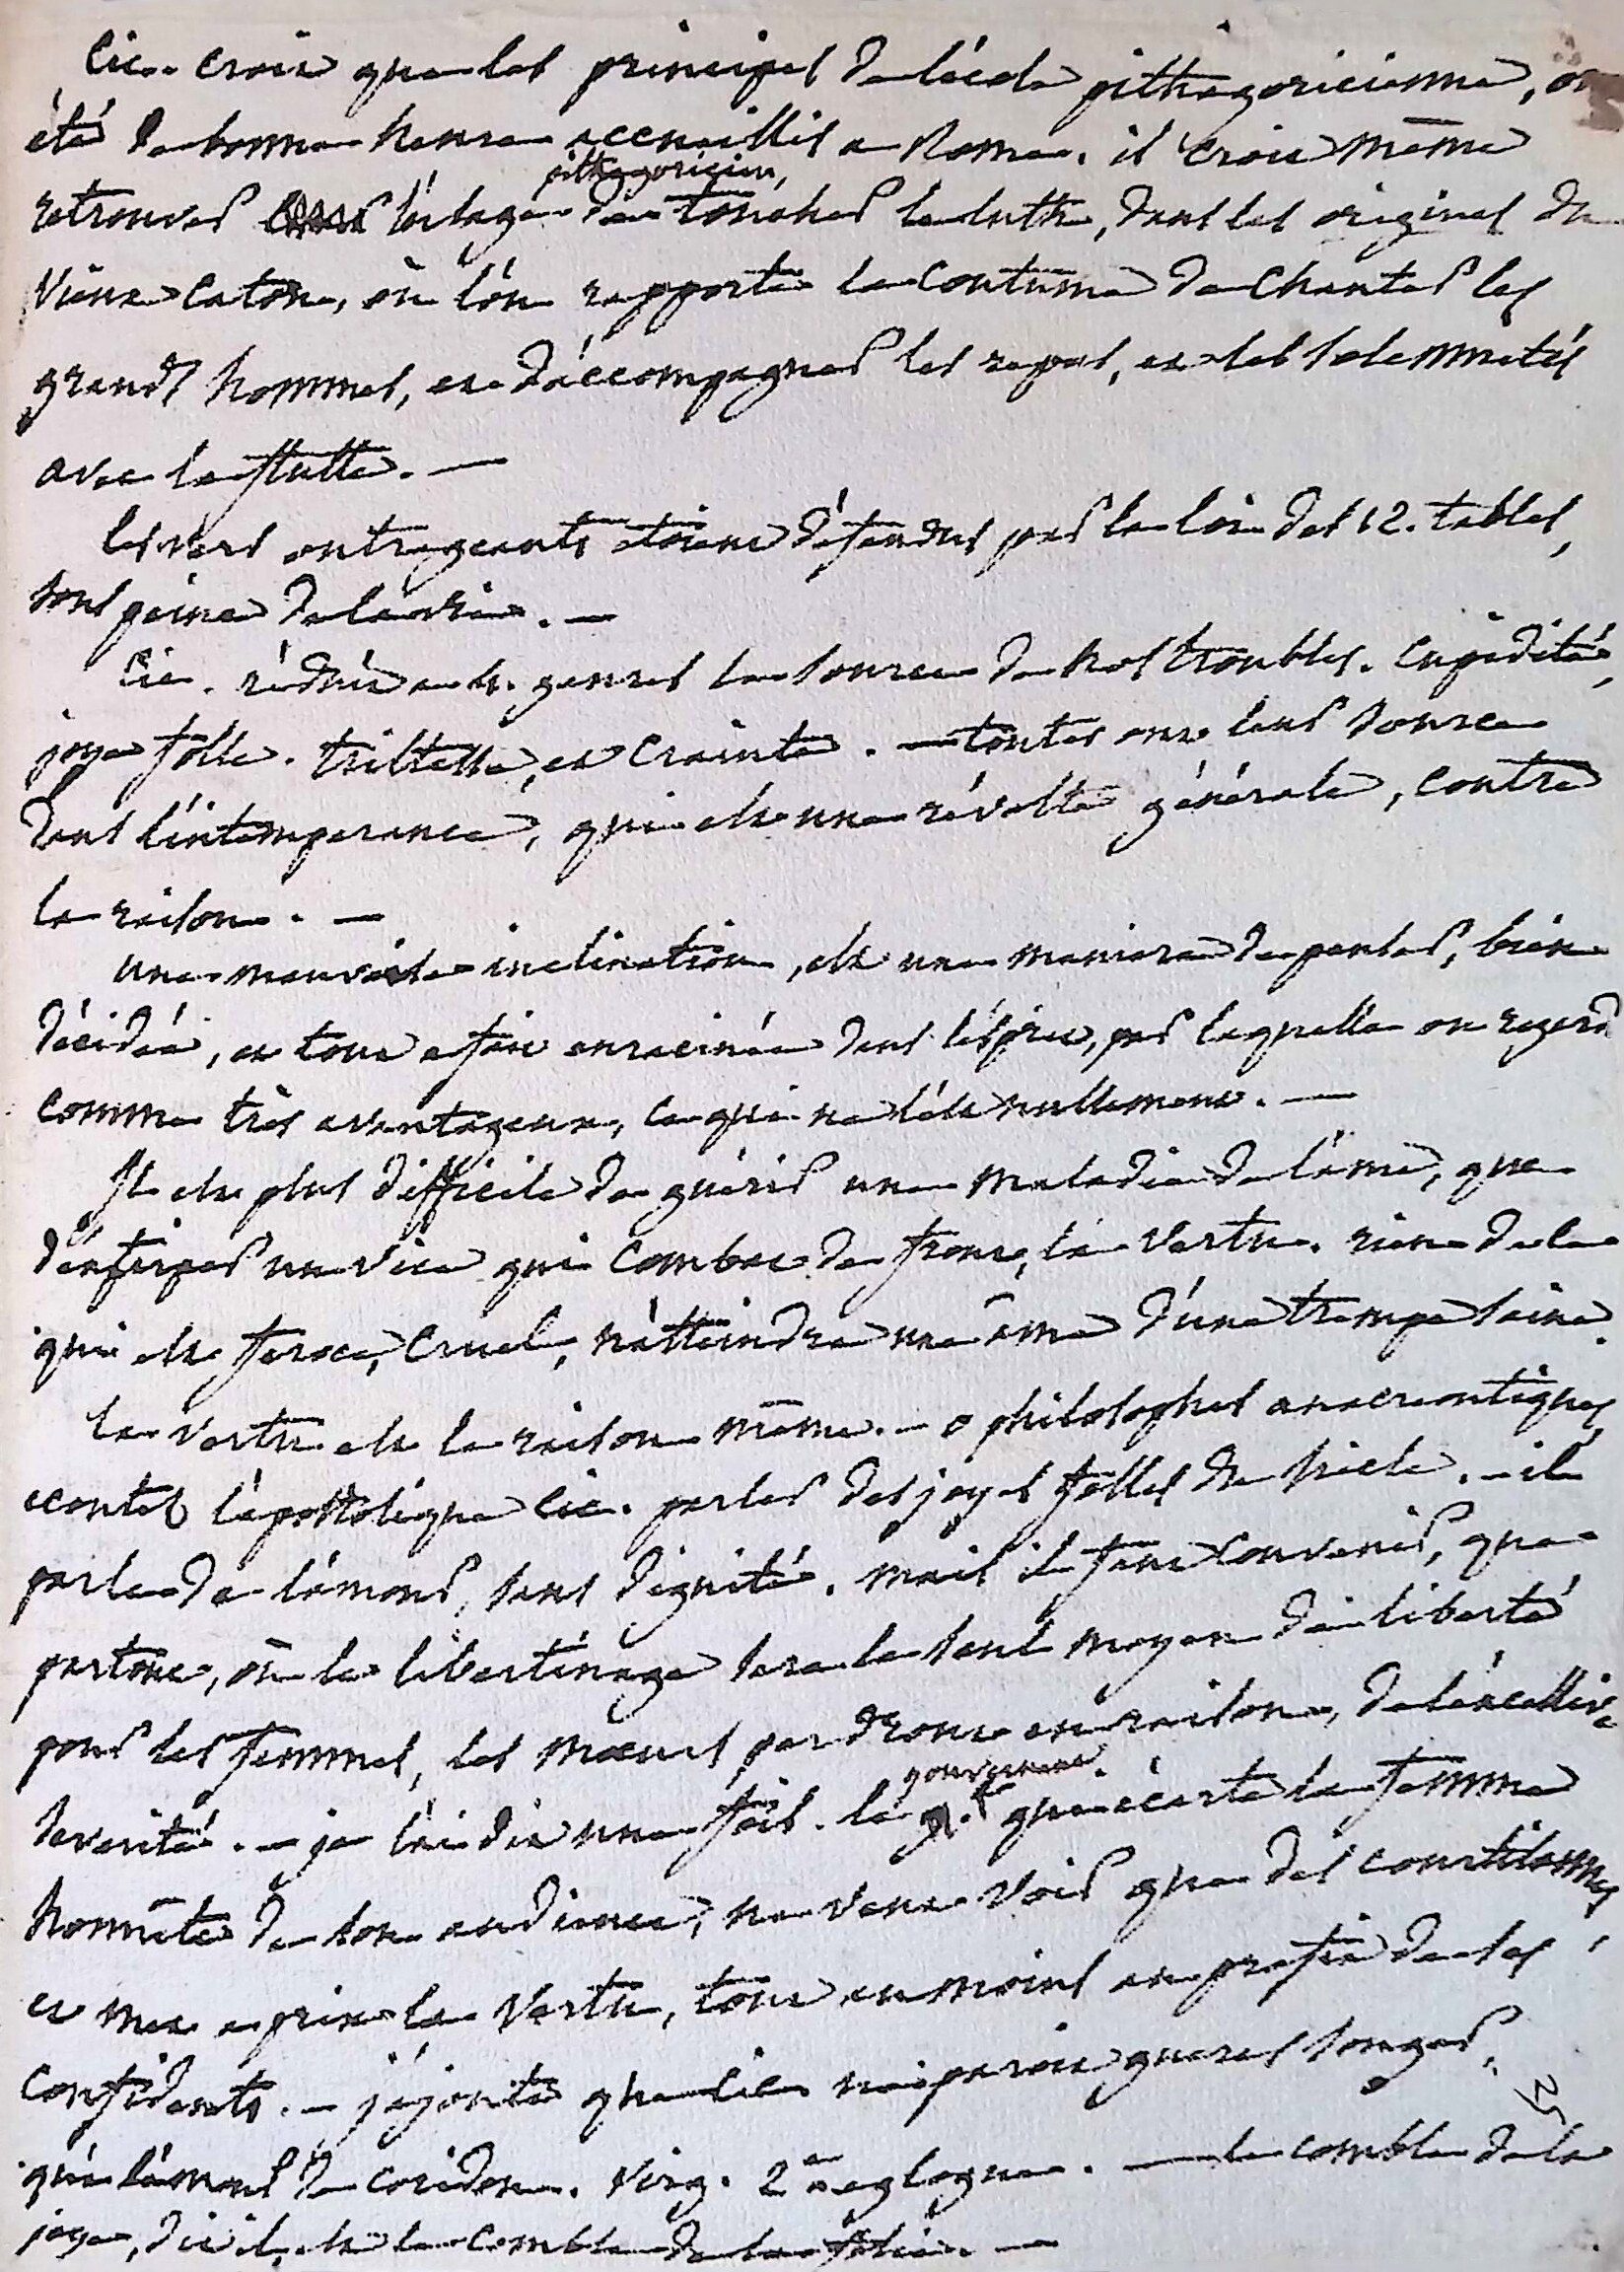 Cic. croit que les principes de l'école pithagoricienne, on
été de bonne heure accueillis a Rome. il croit même
retrouver l'usage pithagoricien, de toucher le luth, dans les origines du
vieux Caton, où l'on rapporte la coutume de chanter les
grands hommes, et d'accompagner les repas, et les solemnités
avec la flutte. —
les vers outrageants étoient défendus par la loi des 12. tables,
sous peine de la vie. —
Cic. réduit a 4. genres la source de nos troubles. cupidité,
joye folle. tristesse, et crainte. — toutes ont leur source
dans l'intemperance, qui est une révolte générale, contre
la raison. —
une mauvaise inclination, est une maniere de penser, bien
décidée, et tout a fait enracinée dans l'esprit, par laquelle on regarde
comme très avantageux, ce qui ne l'est nullement. —
Il est plus difficile de guérir une maladie de l'ame, que
d'extirper un vice qui combat de front, la vertu. rien de ce
qui est feroce, cruel, n'atteindra une ame d'une trempe saine.
la vertu est la raison même. — o philosophes anacreontiques,
ecoutez l'apostolique Cic. parler des joyes folles du siecle. — il
parle de l'amour, sans dignité. mais il faut convenir, que
partout, où le libertinage sera le seul moyen de liberté
pour les femmes, les mœurs perdront en raison, de l'excessive
severité. — je l'ai dit une fois. le g.t gouvernement. qui écarte la femme
honnête de son audience, ne veut voir que des courtisannes
et met a prix la vertu, tout au moins au profit de ses
confidents. — j'ajoute que Cic. ne paroit gueres songer,
qu'a l'amour de coridon. Virg. 2.e eglogue. — le comble de la
joye, dit il, est le comble de la folie. —